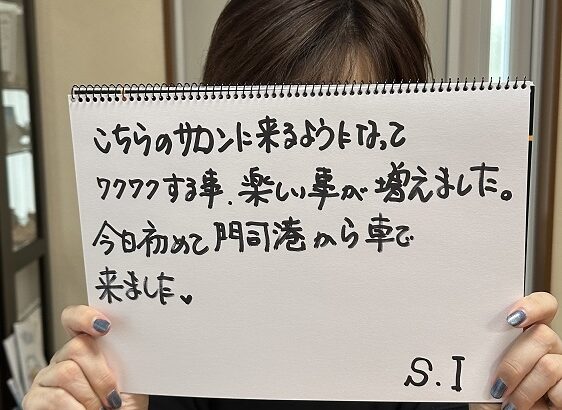 こちらのサロンに来るようになって
ワクワクする事、楽しい事が増えました。
今日初めて門司港から車で
来ました♥
S.I